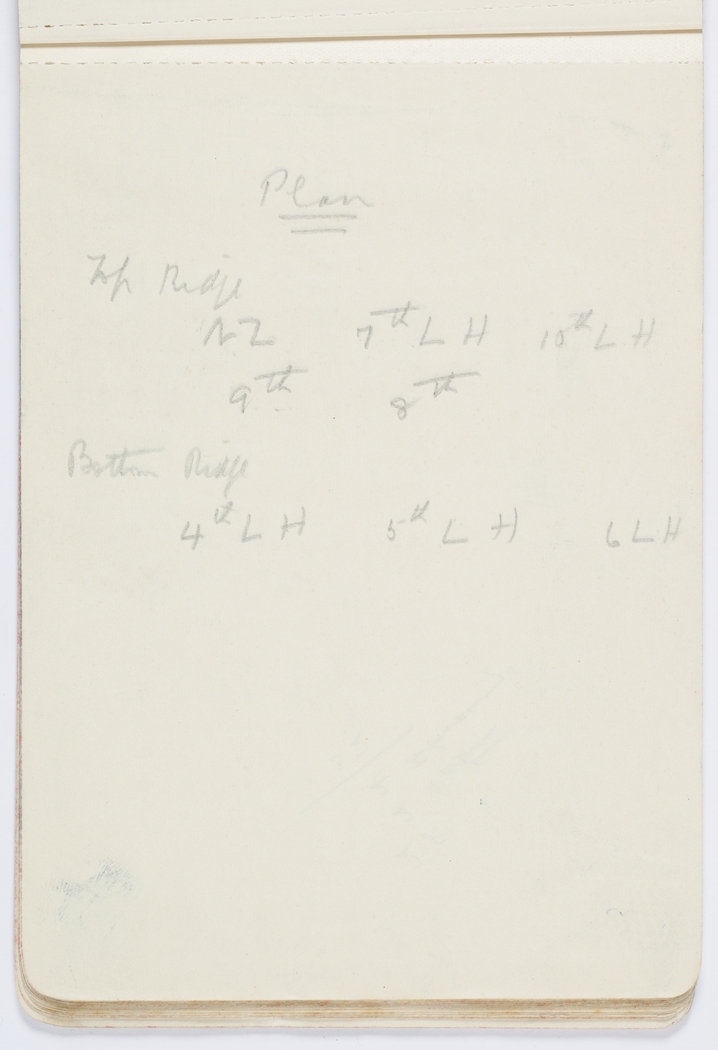 Plan
Top Ridge
NZ 7th L H 10th L H
9th 8th
Bottom Ridge
4th L H 5th L H 6 L H